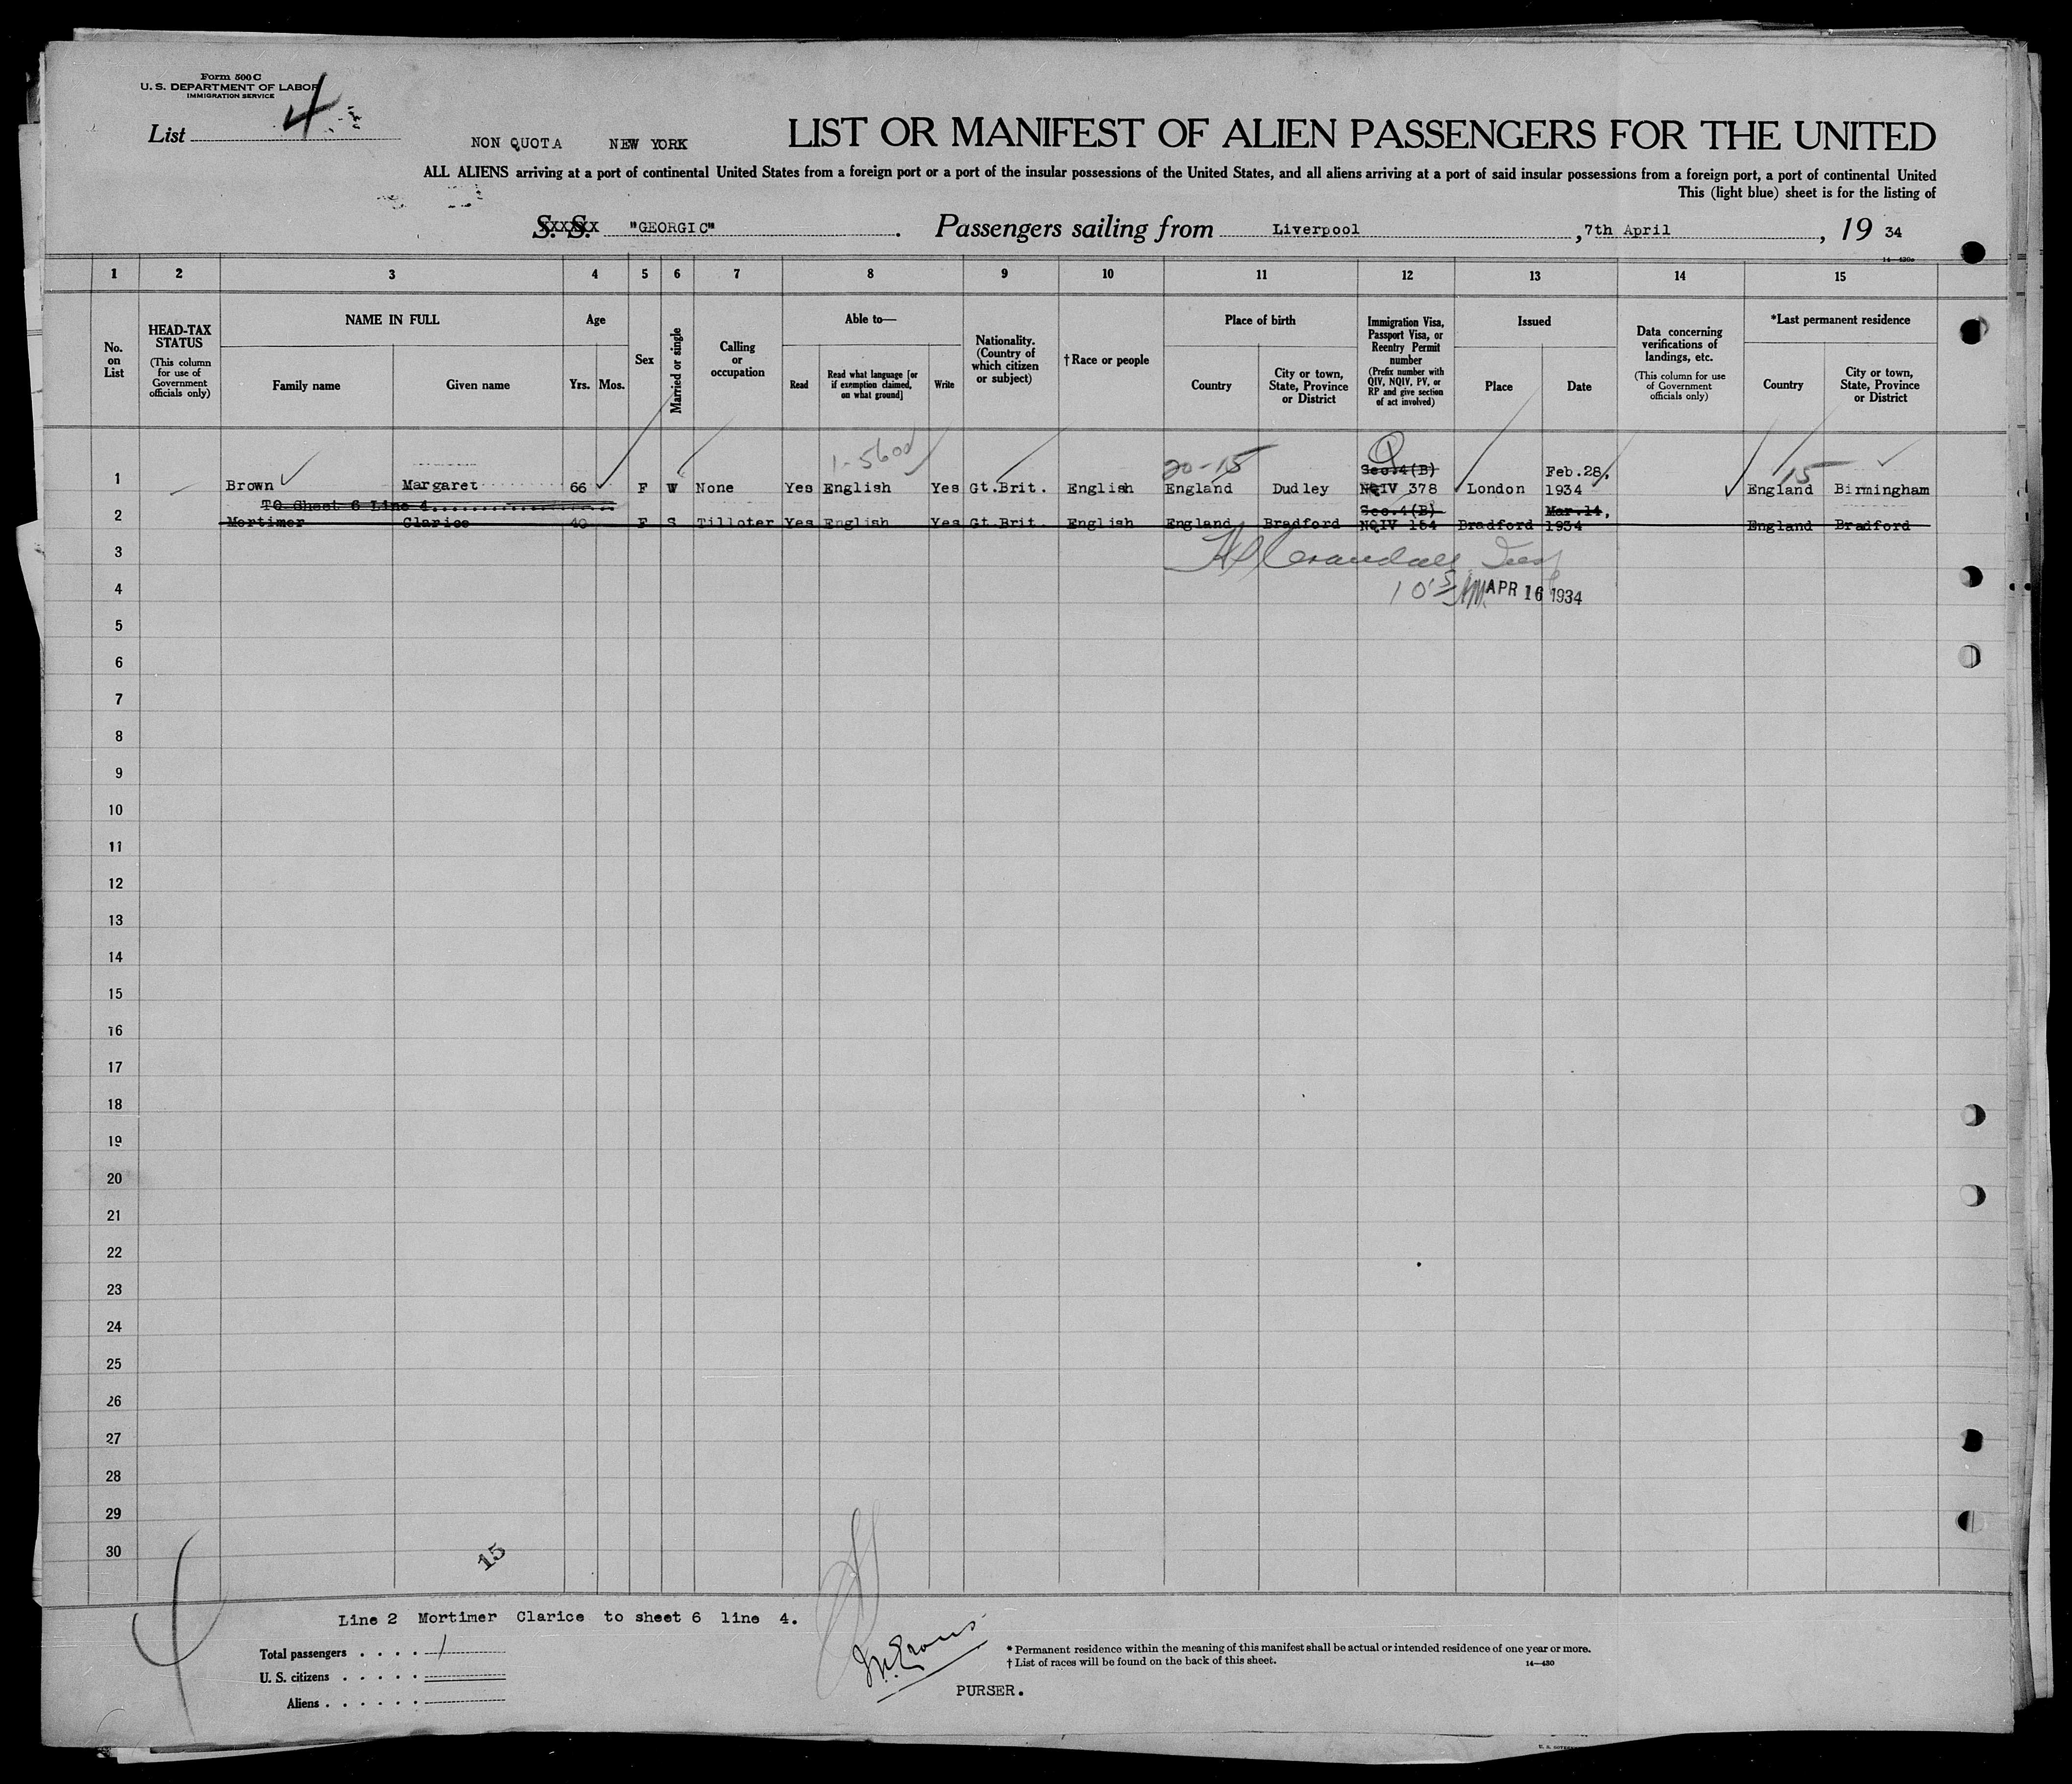 Form 500 C
U. S. DEPARTMENT OF LABOR
IMMIGRATION SERVICE
List 4
NON QUOTA NEW YORK
LIST OR MANIFEST OF ALIEN PASSENGERS FOR THE UNITED
ALL ALIENS arriving at a port of continental United States from a foreign port or a port of the insular possessions of the United States, and all aliens arriving at a port of said insular possessions from a foreign port, a port of continental United
This (light blue) sheet is for the listing of
S. S. "GEORGIC". Passengers sailing from Liverpool, 7th April, 19 34
1 2 3 4 5 6 7 8 9 10 11 12 13 14 15
No. on List
HEAD-TAX STATUS (This column for use of Government officials only)
NAME IN FULL
Family name
Given name
Age
Yrs.
Mos.
Sex
Married or single
Calling or occupation
Able to—
Read
Read what language [or if exemption claimed, on what ground]
Write
Nationality. (Country of which citizen or subject)
†Race or people
Place of birth
Country
City or town, State, Province or District
Immigration Visa, Passport Visa, or Reentry Permit number (Prefix number with QIV, NQIV, PV, or RP and give section of act involved)
Issued
Place
Date
Data concerning verifications of landings, etc. (This column for use of Government officials only)
*Last permanent residence
Country
City or town, State, Province or District
1-5600 20-15 Q Sec.4(B) Feb.28, 15
1 Brown Margaret 66 F W None Yes English Yes Gt.Brit. English England Dudley NQIV 378 London 1934 England Birmingham
TO Sheet 6 Line 4 Sec.4(B) Mar.14,
2 Mortimer Clarice 40 F S Tilloter Yes English Yes Gt.Brit. English England Bradford NQIV 154 Bradford 1934 England Bradford
3
4 APR 16 1934
5
6
7
8
9
10
11
12
13
14
15
16
17
18
19
20
21
22
23
24
25
26
27
28
29
30
15
Line 2 Mortimer Clarice to sheet 6 line 4.
Total passengers . . . . 1
U. S. citizens . . . . .
Aliens . . . . . .
PURSER.
* Permanent residence within the meaning of this manifest shall be actual or intended residence of one year or more.
† List of races will be found on the back of this sheet.
14—430